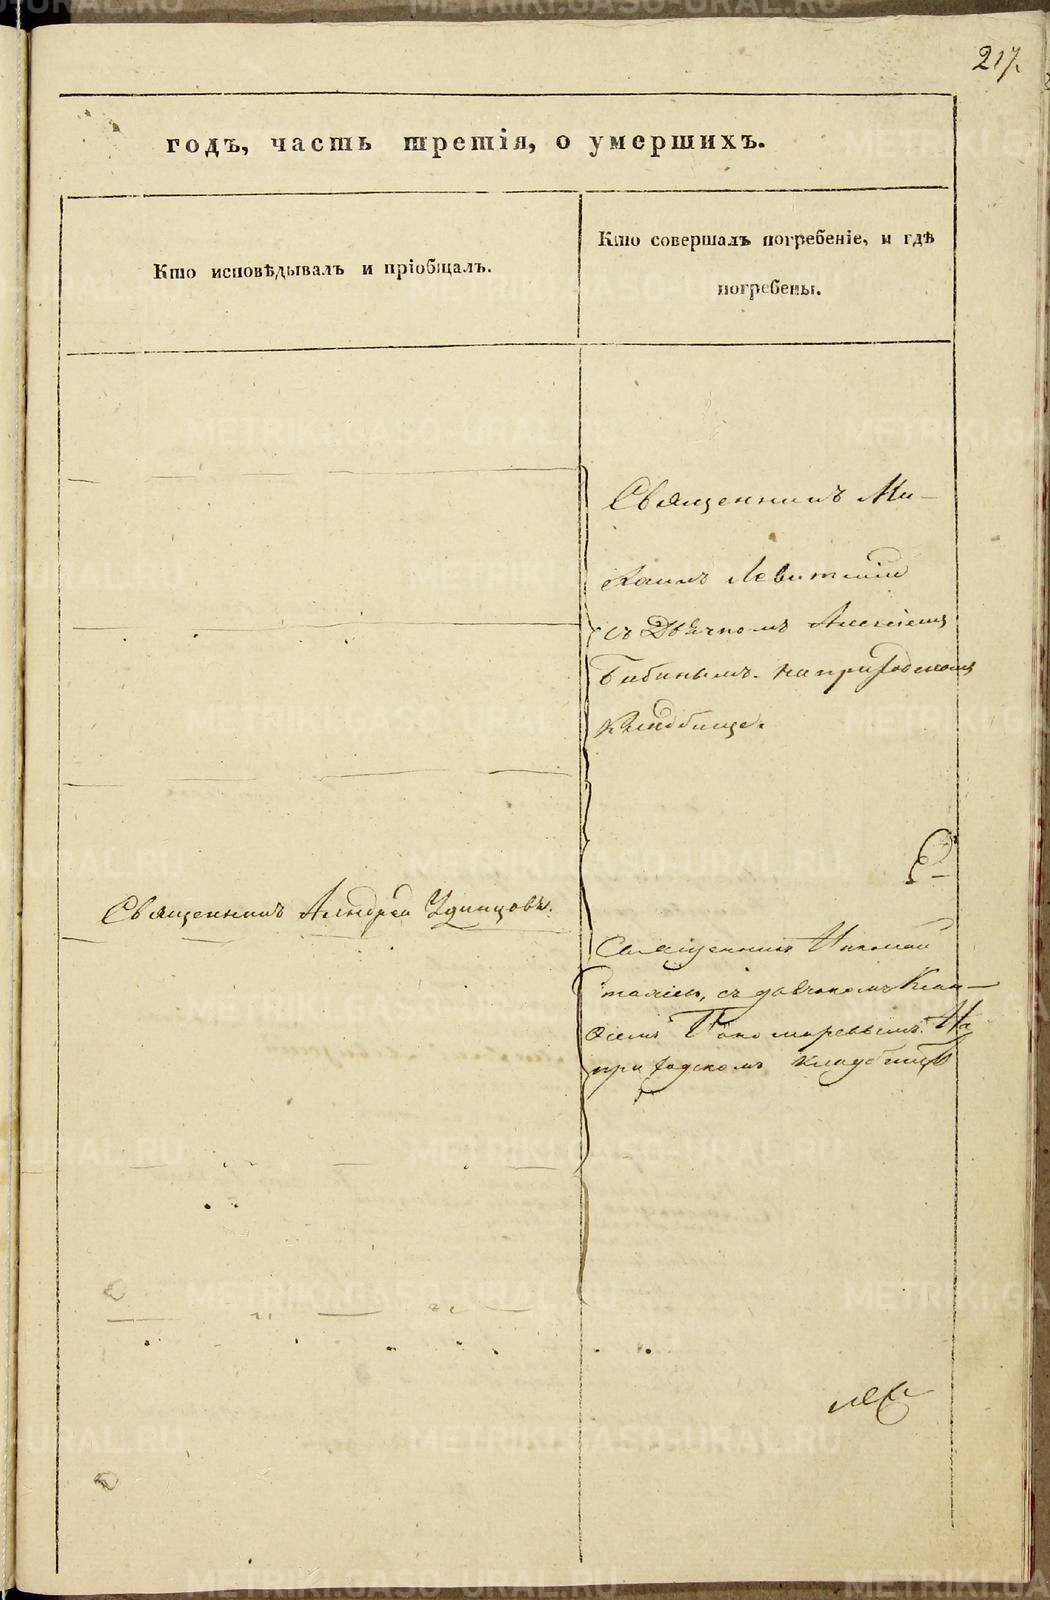 217.
годъ, часть третія, о умершихъ.
Кто исповѣдывалъ и пріобщалъ.
Кто совершалъ погребеніе, и гдѣ
погребены.
Священникъ Ми-
хаилъ Левитскій
съ Дьячкомъ Алексіемъ
Бабинымъ. на приходскомъ
кладбище.
Священникъ Андрей Удинцовъ.
Священникъ Николай
съ дьячкомъ
Пономаревымъ. На
приходскомъ кладбищѣ
METRIKI.GASO-URAL.RU